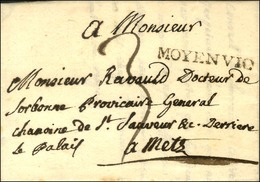 A Monsieur
MOYENVIC
3
Monsieur Ravauld Docteur de
Sorbonne Provicaire General
chanoine de St. Sauveur &c. Derriere
le Palais
a Metz